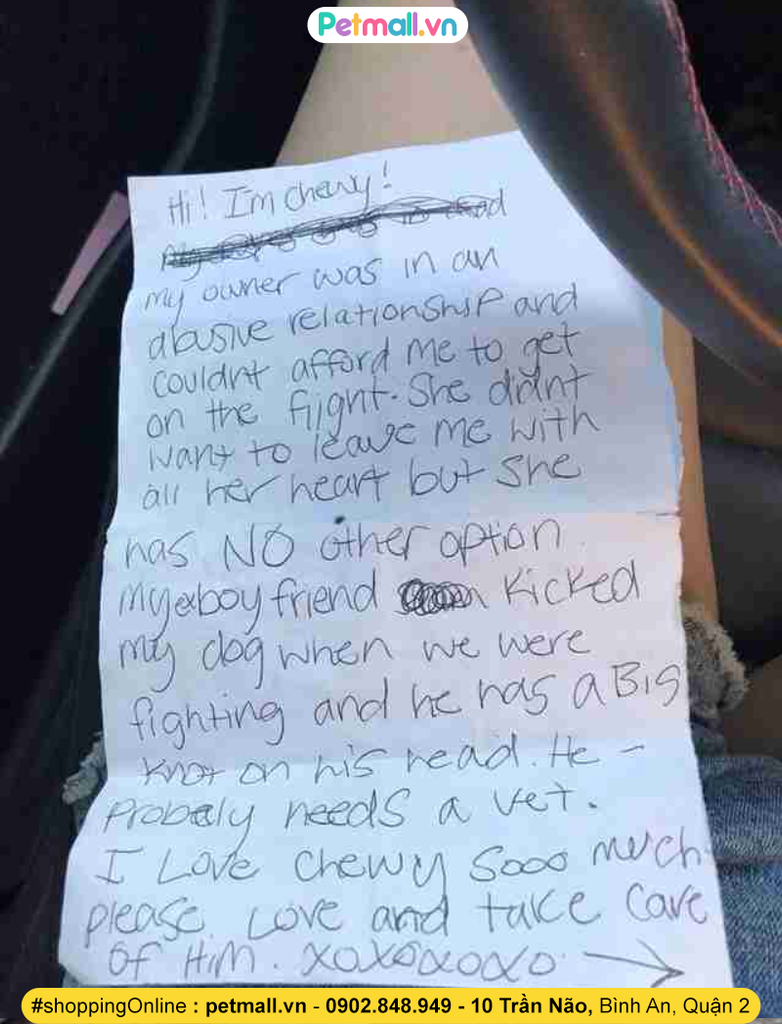 Petmall.vn
Hi! I'm Chewy!
my owner was in an
abusive relationship and
couldnt afford me to get
on the flight. She didnt
want to leave me with
all her heart but she
has NO other option
My exboyfriend kicked
my dog when we were
fighting and he has a BIG
knot on his head. He
Probely needs a vet.
I Love Chewy sooo much
please Love and take care
of HIM. xoxoxoxo
#shoppingOnline : petmall.vn - 0902.848.949 - 10 Trần Não, Bình An, Quận 2